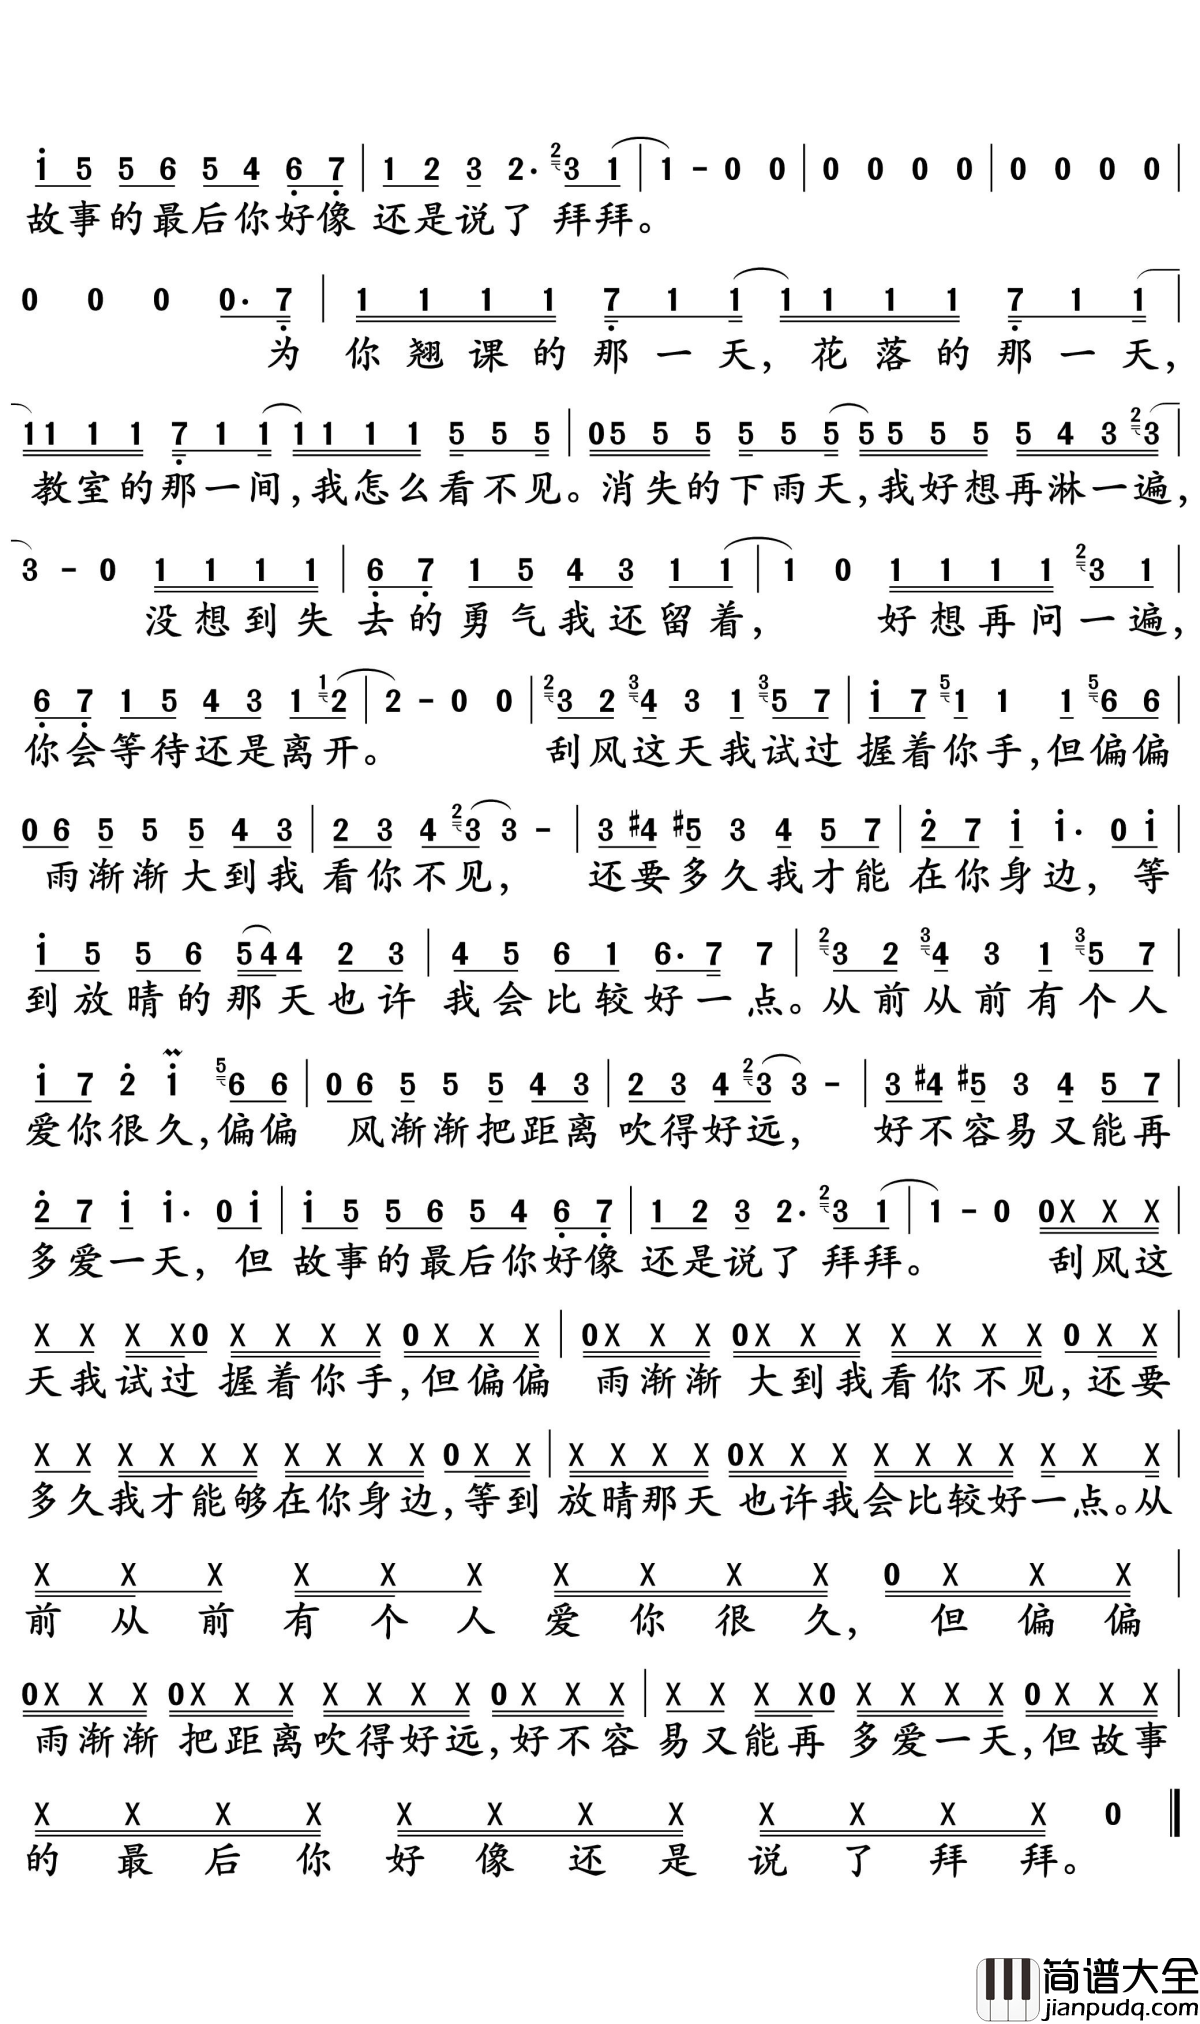 1̇ 5 5 6 5 4 6̣ 7̣ | 1 2 3 2· ²3 1 | 1 - 0 0 | 0 0 0 0 | 0 0 0 0 |
故事的最后你好像 还是说了 拜拜。
0 0 0 0· 7̣ | 1 1 1 1 7̣ 1 1 1 1 1 1 7̣ 1 1 |
为 你翘课的那一天,花落的那一天,
1 1 1 1 7̣ 1 1 1 1 1 1 5 5 5 | 0 5 5 5 5 5 5 5 5 5 5 5 4 3 ²3 |
教室的那一间,我怎么看不见。消失的下雨天,我好想再淋一遍,
3 - 0 1 1 1 1 | 6̣ 7̣ 1 5 4 3 1 1 | 1 0 1 1 1 1 ²3 1 |
没想到失去的勇气我还留着, 好想再问一遍,
6̣ 7̣ 1 5 4 3 1 ¹2 | 2 - 0 0 | ²3 2 ³4 3 1 ³5 7 | 1̇ 7 ⁵1 1 1 ⁵6 6 |
你会等待还是离开。 刮风这天我试过握着你手,但偏偏
0 6 5 5 5 4 3 | 2 3 4 ²3 3 - | 3 #4 #5 3 4 5 7 | 2̇ 7 1̇ 1̇· 0 1̇ |
雨渐渐大到我看你不见, 还要多久我才能在你身边, 等
1̇ 5 5 6 5 4 4 2 3 | 4 5 6 1 6· 7 7 | ²3 2 ³4 3 1 ³5 7 |
到放晴的那天也许 我会比较好一点。从前从前有个人
1̇ 7 2̇ 1̇ ⁵6 6 | 0 6 5 5 5 4 3 | 2 3 4 ²3 3 - | 3 #4 #5 3 4 5 7 |
爱你很久,偏偏 风渐渐把距离吹得好远, 好不容易又能再
2̇ 7 1̇ 1̇· 0 1̇ | 1̇ 5 5 6 5 4 6̣ 7̣ | 1 2 3 2· ²3 1 | 1 - 0 0 X X X |
多爱一天,但 故事的最后你好像还是说了 拜拜。 刮风这
X X X X 0 X X X X 0 X X X | 0 X X X 0 X X X X X X X 0 X X |
天我试过 握着你手,但偏偏 雨渐渐 大到我看你不见,还要
X X X X X X X X X X 0 X X | X X X X 0 X X X X X X X X X X |
多久我才能够在你身边,等到 放晴那天 也许我会比较好一点。从
X X X X X X X X X X 0 X X X |
前从前有个人爱你很久, 但偏偏
0 X X X 0 X X X X X X X 0 X X X | X X X X 0 X X X X 0 X X X |
雨渐渐 把距离吹得好远,好不容 易又能再 多爱一天,但故事
X X X X X X X X X X X X 0
的最后你好像还是说了拜拜。
简谱大全
jianpudq.com